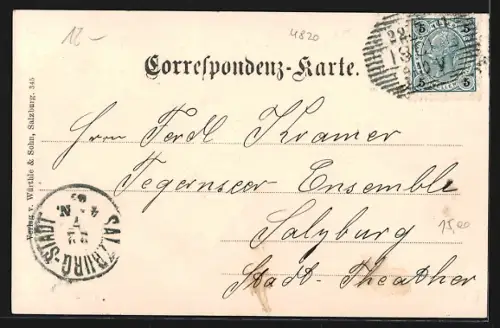 12,-
4820
Correspondenz-Karte.
Herrn Ferdl Kramer
Tegernseer Ensemble
Salzburg
Stadt-Theather
15,00
Verlag v. Würthle & Sohn, Salzburg. 345
SALZBURG-STADT
5
5